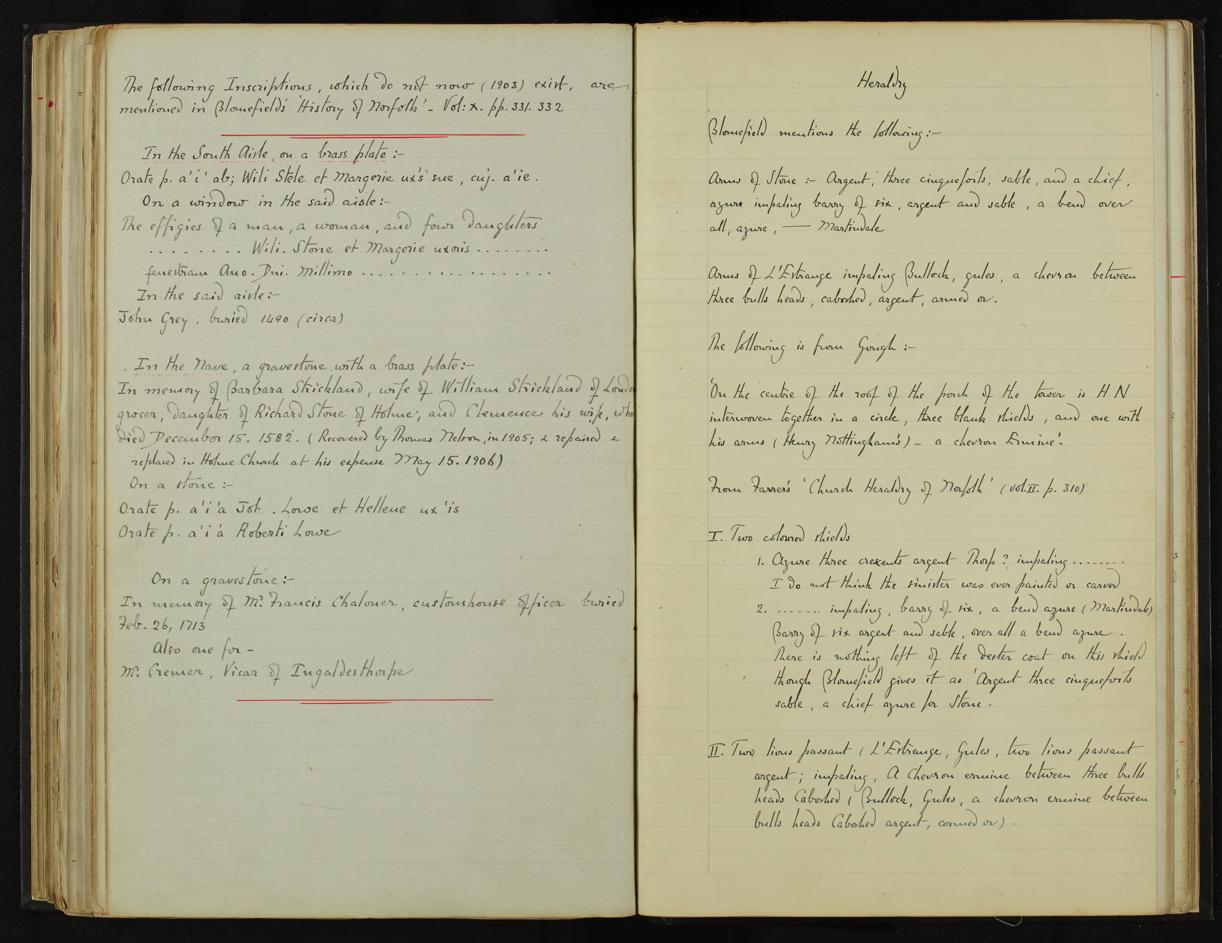 The following Inscriptions, which do not now (1903) exist, are
mentioned in Blomefield's 'History of Norfolk' - Vol: x. pp. 331. 332
In the South Aisle, on a brass plate :-
Orate p. a'i' ab; Wili Stele et Margerie ux's' sue, cuj. a'ie.
On a window in the said aisle :-
The effigies of a man, a woman, and four daughters
. . . . . . . . Wili. Stone et Margerie uxoris . . . . . . . .
fenestram Ano. Dni. Millimo . . . . . . . . . . . . . . . .
In the said aisle :-
John Grey. buried 1490 (circa)
In the Nave, a gravestone with a brass plate :-
In memory of Barbara Strickland, wife of William Strickland of London
grocer, daughter of Richard Stone of Holme, and Clemence his wife, who
died December 15. 1582. (Recovered by Thomas Nelson, in 1905; & repaired &
replaced in Holme Church at his expense May 15. 1906)
On a stone :-
Orate p. a'i'a Joh. Lowe et Hellene ux'is
Orate p. a'i'a Roberti Lowe
On a gravestone :-
In memory of Mr. Francis Chaloner, customhouse officer buried
Feb. 26, 1713
Also one for -
Mr. Cremer, Vicar of Ingaldesthorpe
Heraldry
Blomefield mentions the following :-
Arms of Stone :- Argent, three cinquefoils, sable, and a chief,
azure impaling barry of six, argent and sable, a bend over
all, azure, — Martindale
Arms of L'Estrange impaling Bullock, gules, a chevron between
three bulls heads, caboshed, argent, armed or.
The following is from Gough :-
'On the centre of the roof of the porch of the tower is H N
interwoven together in a circle, three blank shields, and one with
his arms (Henry Nottingham's) - a chevron Ermine'.
From Farrer's 'Church Heraldry of Norfolk' (vol. II. p. 310)
I. Two coloured shields
1. Azure three crescents argent Thorp? impaling . . . . . . . .
I do not think the sinister was ever painted or carved
2. . . . . . . . impaling, barry of six, a bend azure (Martindale)
Barry of six argent and sable, over all a bend azure.
There is nothing left of the dexter coat on this shield
though Blomefield gives it as 'Argent three cinquefoils
sable, a chief azure for Stone.
II. Two lions passant (L'Estrange, Gules, two lions passant
argent; impaling, A Chevron ermine between three bulls
heads Caboshed (Bullock, Gules, a chevron ermine between
bulls heads Caboshed argent, armed or).